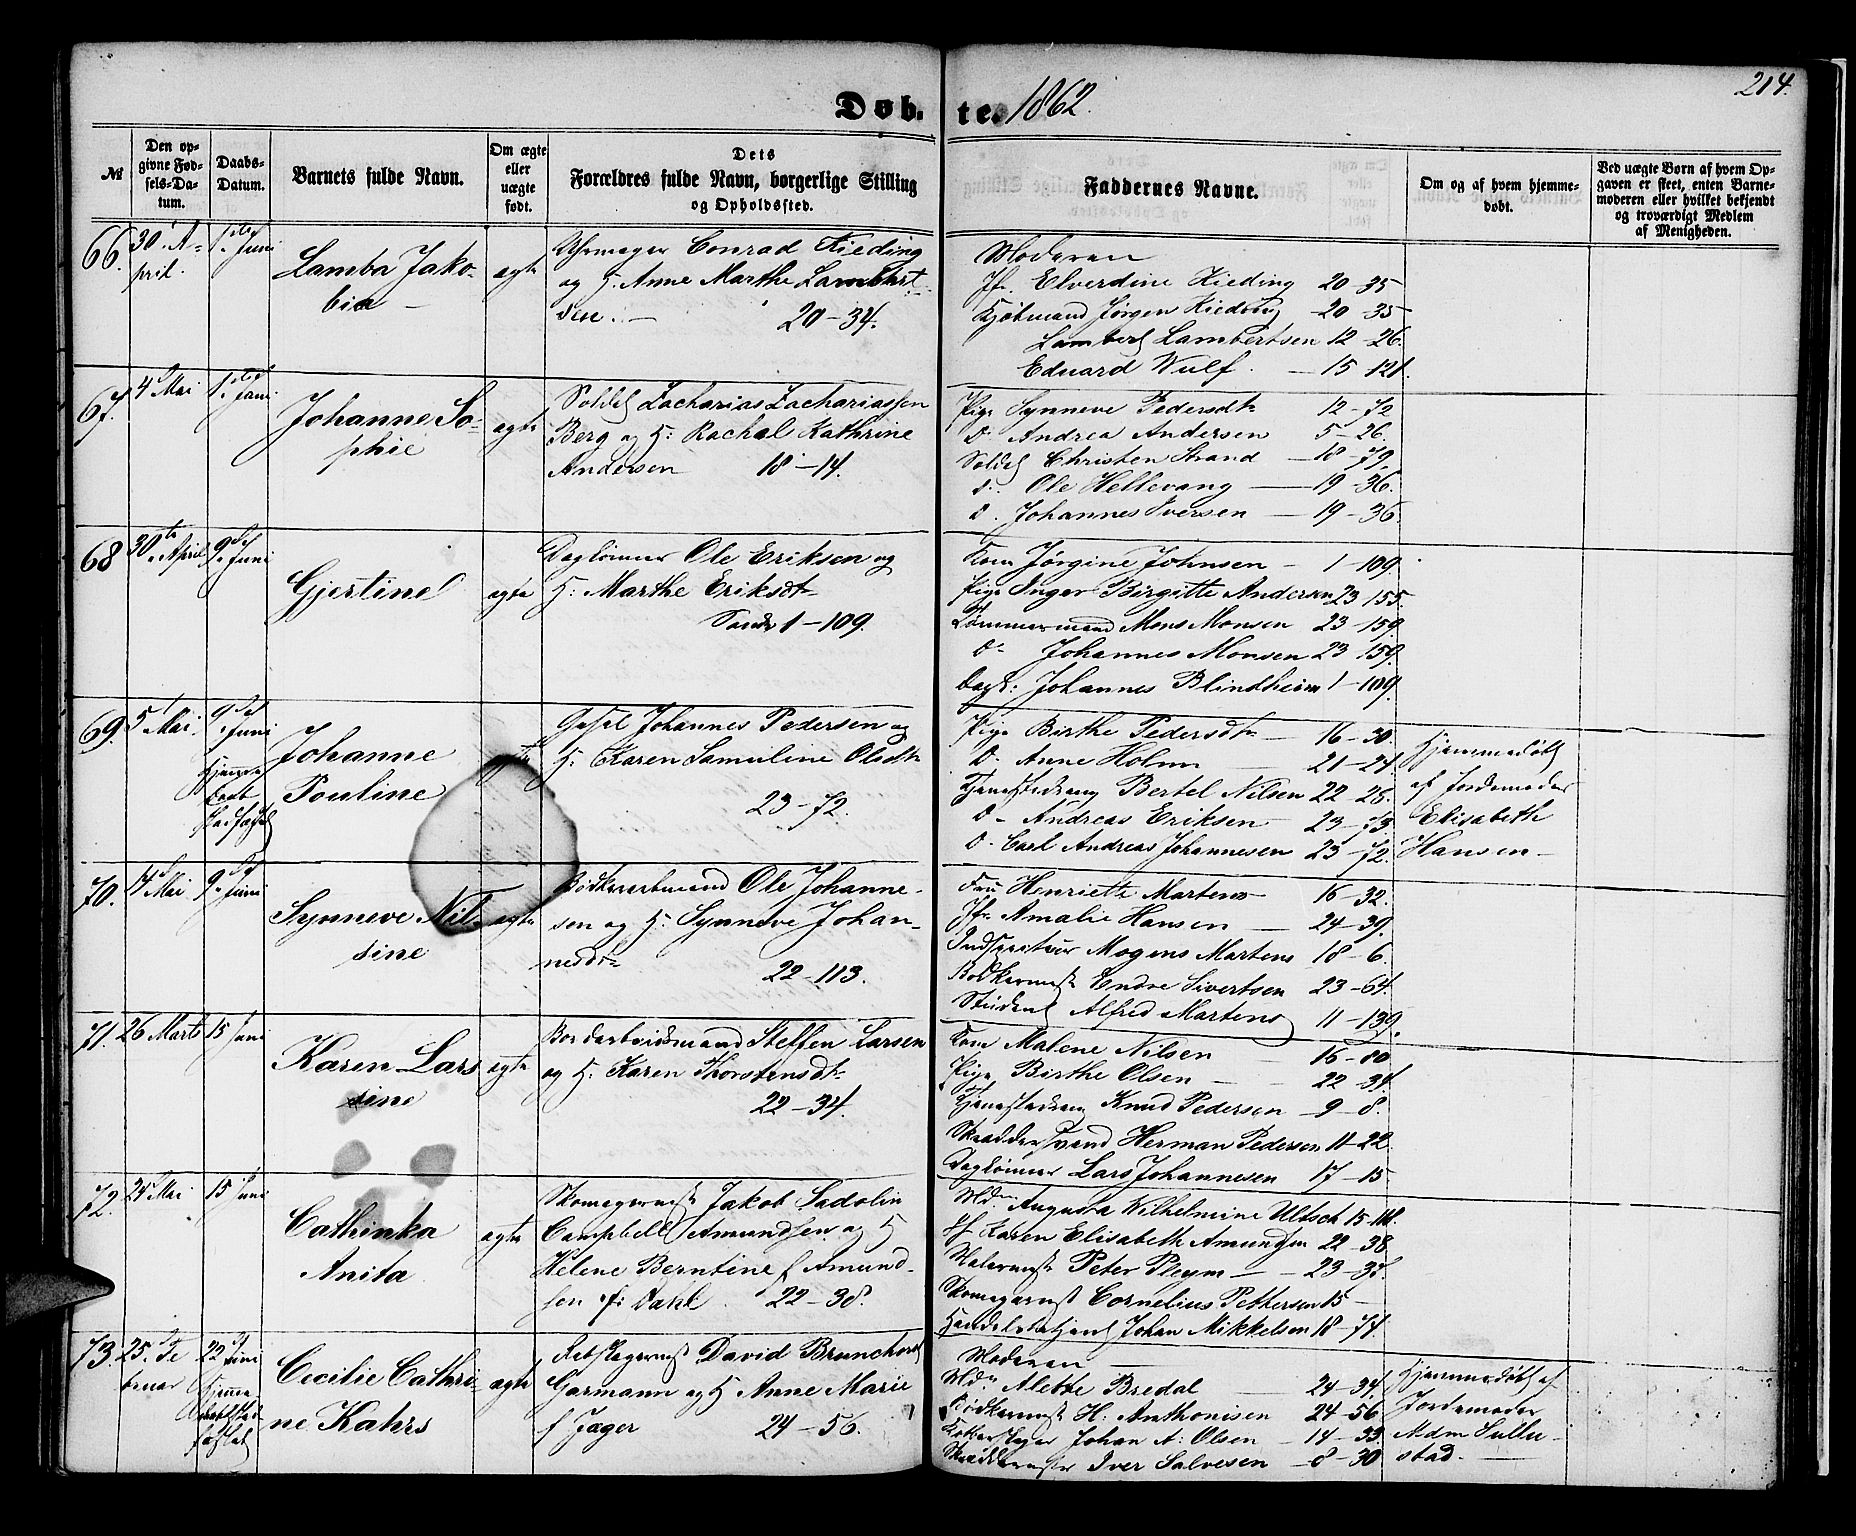 214.
Døb- te. 1862.
№
Den op-
givne Fød-
sels-Da-
tum.
Daabs-
Datum.
Barnets fulde Navn.
Om ægte
eller
uægte
født.
Dets
Forældres fulde Navn, borgerlige Stilling
og Opholdssted.
Faddernes Navne.
Om og af hvem hjemme-
døbt.
Ved uægte Børn af hvem Op-
gaven er skeet, enten Barne-
moderen eller hvilket bekjendt
og troværdigt Medlem
af Menigheden.
66.
30 A-
pril.
1ste Juni
Lamba Jako-
bia –
egte
Uhrmager Conrad Kieding
og H. Anne Marthe Lambert-
sen. – 20–34.
Moderen
Jfr. Elverdine Kieding 20–35
Kjøbmand Jørgen Kieding 20–35
Lambert Lambertsen 12–26.
Eduard Wulf. – 15–121.
67.
4 Mai
1ste Juni
Johanne So-
phie
egte
Soldat Zacharias Zachariassen
Berg og H: Rachel Kathrine
Andersen 18–14.
Pige Synneve Pedersdtr 12–72
Do Andrea Andersen 5–26.
Soldat Christen Strand – 18–79.
d. Ole Hellevang – 19–36.
d. Johannes Iversen – 19–36.
68
30te April
9de Juni
Gjertine
egte
Daglønner Ole Eriksen og
H: Marthe Eriksdtr
Sandv 1–109.
Kone Jørgine Johnsen – 1–109.
Pige Inger Birgitte Andersen 23–155.
Tømmermand Mons Monsen 23–159.
Do Johannes Monsen 23–159.
Dagl: Johannes Blindheim 1–109.
69.
5 Mai.
9de Juni
Hjemme
Daab
stadfæstet
Johanne
Pouline
egte
Gesel Johannes Pedersen og
H: Karen Samuline Olsdtr
23–72.
Pige Birthe Pedersdtr 16–30.
D. Anne Holm – 21–24.
Tjenestedreng Bertel Nilsen 22–28.
D– Andreas Eriksen – 23–73.
D. Carl Andreas Johannesen 23–72.
Hjemmedøbt
af Jordemoder
Elisabeth
Hansen –
70.
Mai
9de Juni
Synneve Nil-
sine
egte
Bødkerarbmand Ole Johanne-
sen og H: Synneve Johan-
nesdtr 22–113.
Fru Henriette Martens 16–32.
Jfr Amalie Hansen – 24–39.
Inspecteur Mogens Martens 18–6.
Bødkermst Endre Sivertsen 23–64.
Student Alfred Martens 11–139.
71.
26 Marts
15 Juni
Karen Lars
sine
egte
Bordarbeidsmand Steffen Larsen
og H. Karen Thorstensdtr
22–34.
Kone Malene Nilsen 16–80
Pige Birthe Olsen – 22–34.
Tjenestedreng Knud Pedersen – 9–8.
Skræddersvend Herman Pedersen 11–22.
Daglønner Lars Johannesen 17–15
72.
24 Mai
15 Juni
Cathinka
Anita
egte
Skomagermst Jakob Sadolin
Campbell Amundsen og H
Helene Berntine f Amund-
sen f: Dahl. 22–38.
Mdm Augusta Wilhelmine Ultsch 15–
Jf Karen Elisabeth Amundsen 22–38
Malermst Peter Pleym – 23–38.
Skomagermst Cornelius Pettersen 15 –
Handelsbetjent Johan Mikkelsen 18–74.
73
25. Fe
bruar
22 Juni
Hjemme-
daab stad
fæstet
Cecilie Cathri-
ne Kahrs
egte
Rebslagermst David Brunchorst
Garmann og H Anne Marie
f Jæger 24–56.
Moderen
Mdm Alette Bredal 24–34.
Bødkermst H. Anthonisen 24–56
Johan A: Olsen – 14–33
Skræddermster Iver Salvesen – 8–30
Hjemmedøbt af
Jordemoder
Mdm Sullu-
stad. –